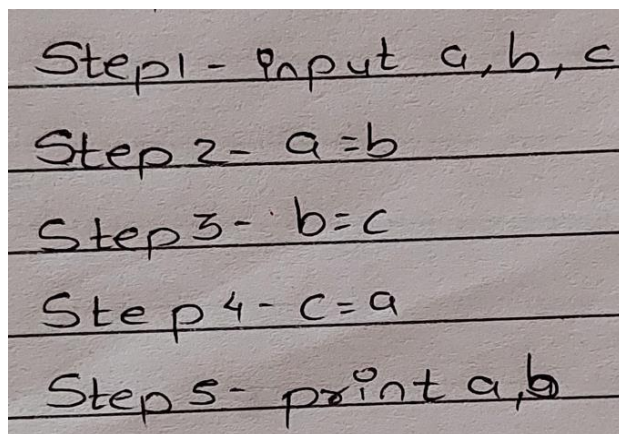 Step1- input a, b, c
Step 2- a=b
Step 3- b=c
Step 4- c=a
Step 5- print a,b